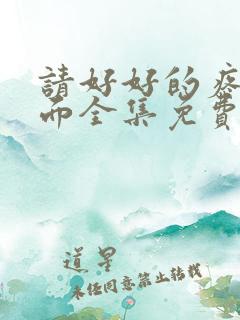 請好好的疼
而全集免費
道星
未经同意禁止转载